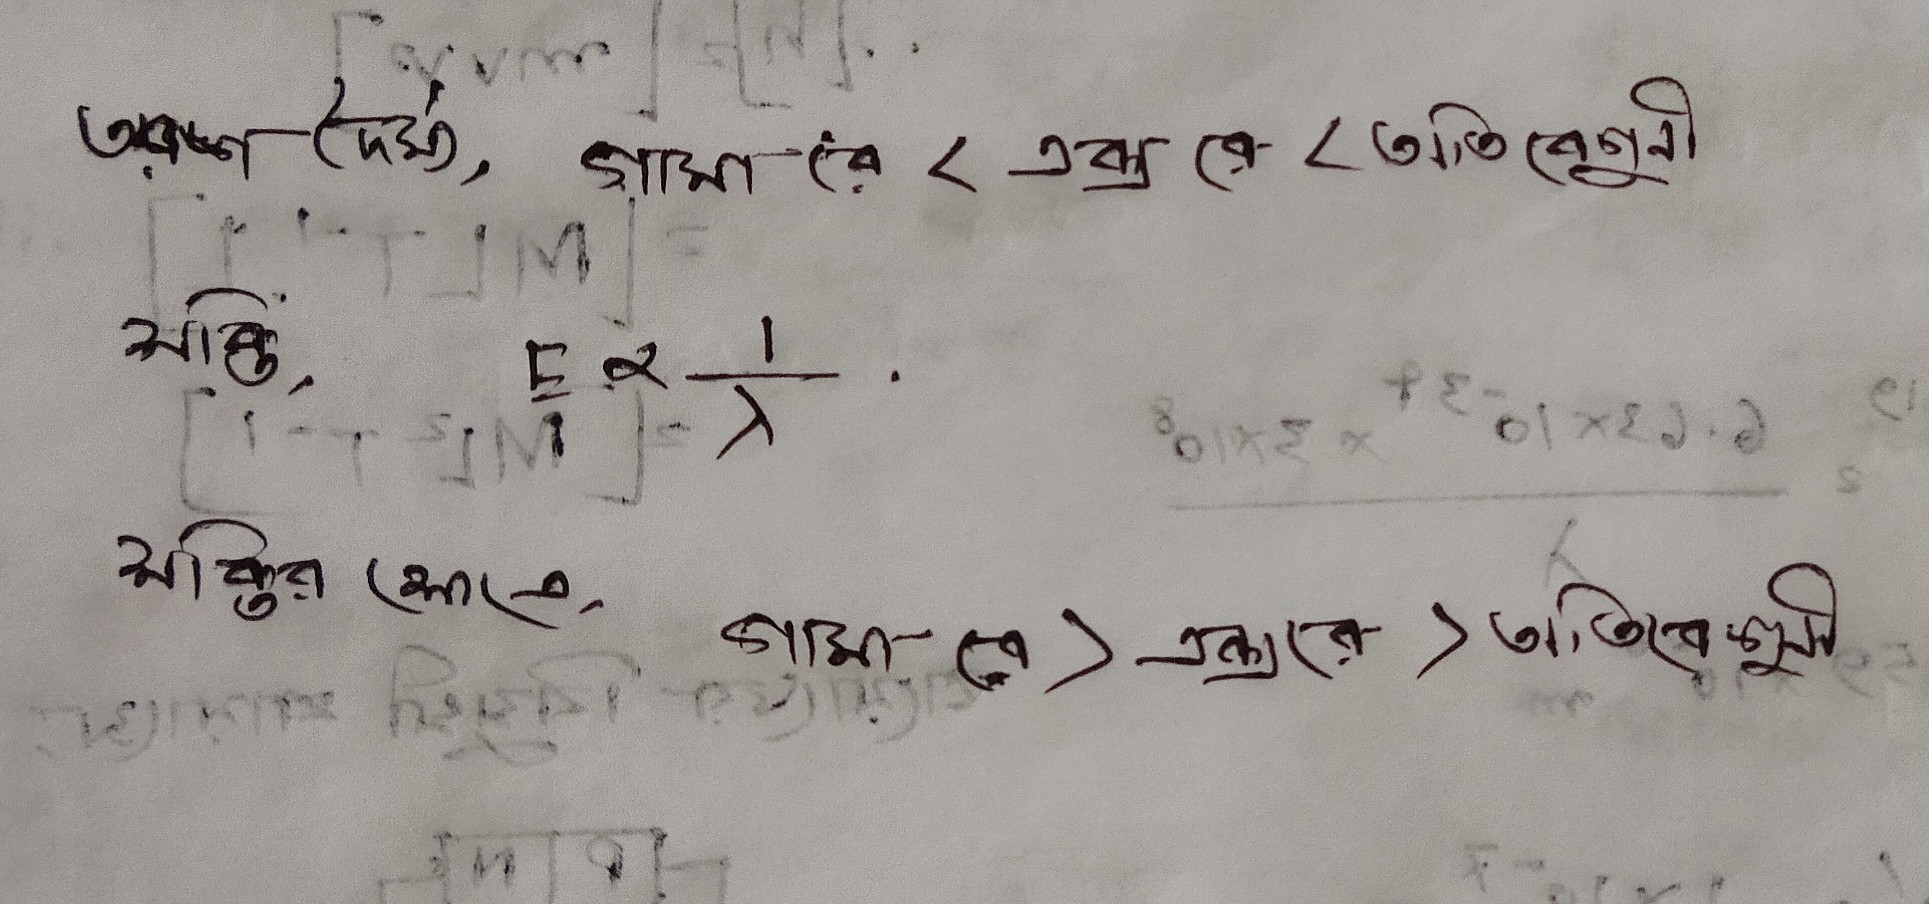 তরঙ্গ দৈর্ঘ্য, গামা রে < এক্স রে < অতি বেগুনী
শক্তি, E ∝ 1/λ .
শক্তির ক্ষেত্রে, গামা রে > এক্সরে > অতিবেগুনী